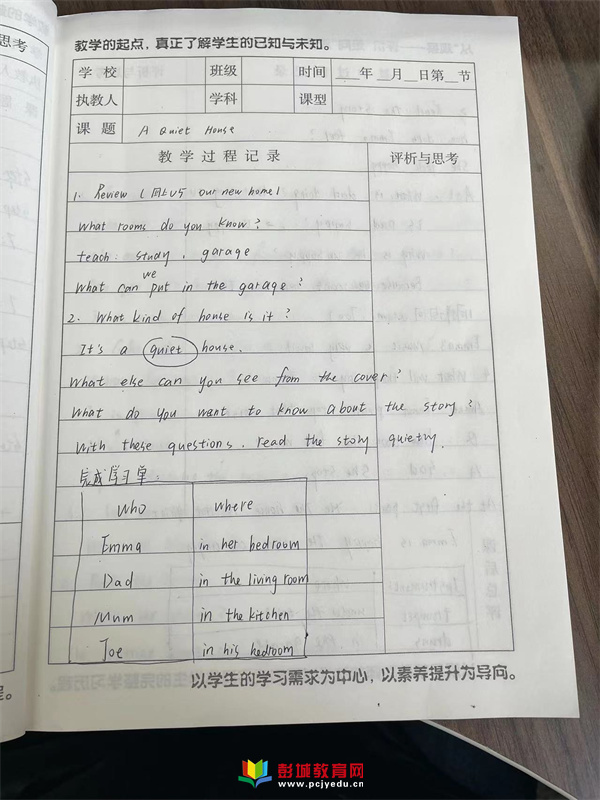 教学的起点，真正了解学生的已知与未知。
思考
学 校 班级 时间 __年__月__日第__节
执教人 学科 课型
课 题 A Quiet House
教 学 过 程 记 录 评析与思考
1. Review ( 同上U5 our new home)
What rooms do you know?
teach: study, garage
we
What can put in the garage?
2. What kind of house is it?
It's a quiet house.
What else can you see from the cover?
What do you want to know about the story?
With these questions. read the story quietry.
完成学习单：
Who where
Emma in her bedroom
Dad in the living room
Mum in the kitchen
Joe in his bedroom
以学生的学习需求为中心，以素养提升为导向。
程。
彭城教育网
www.pcjyedu.cn